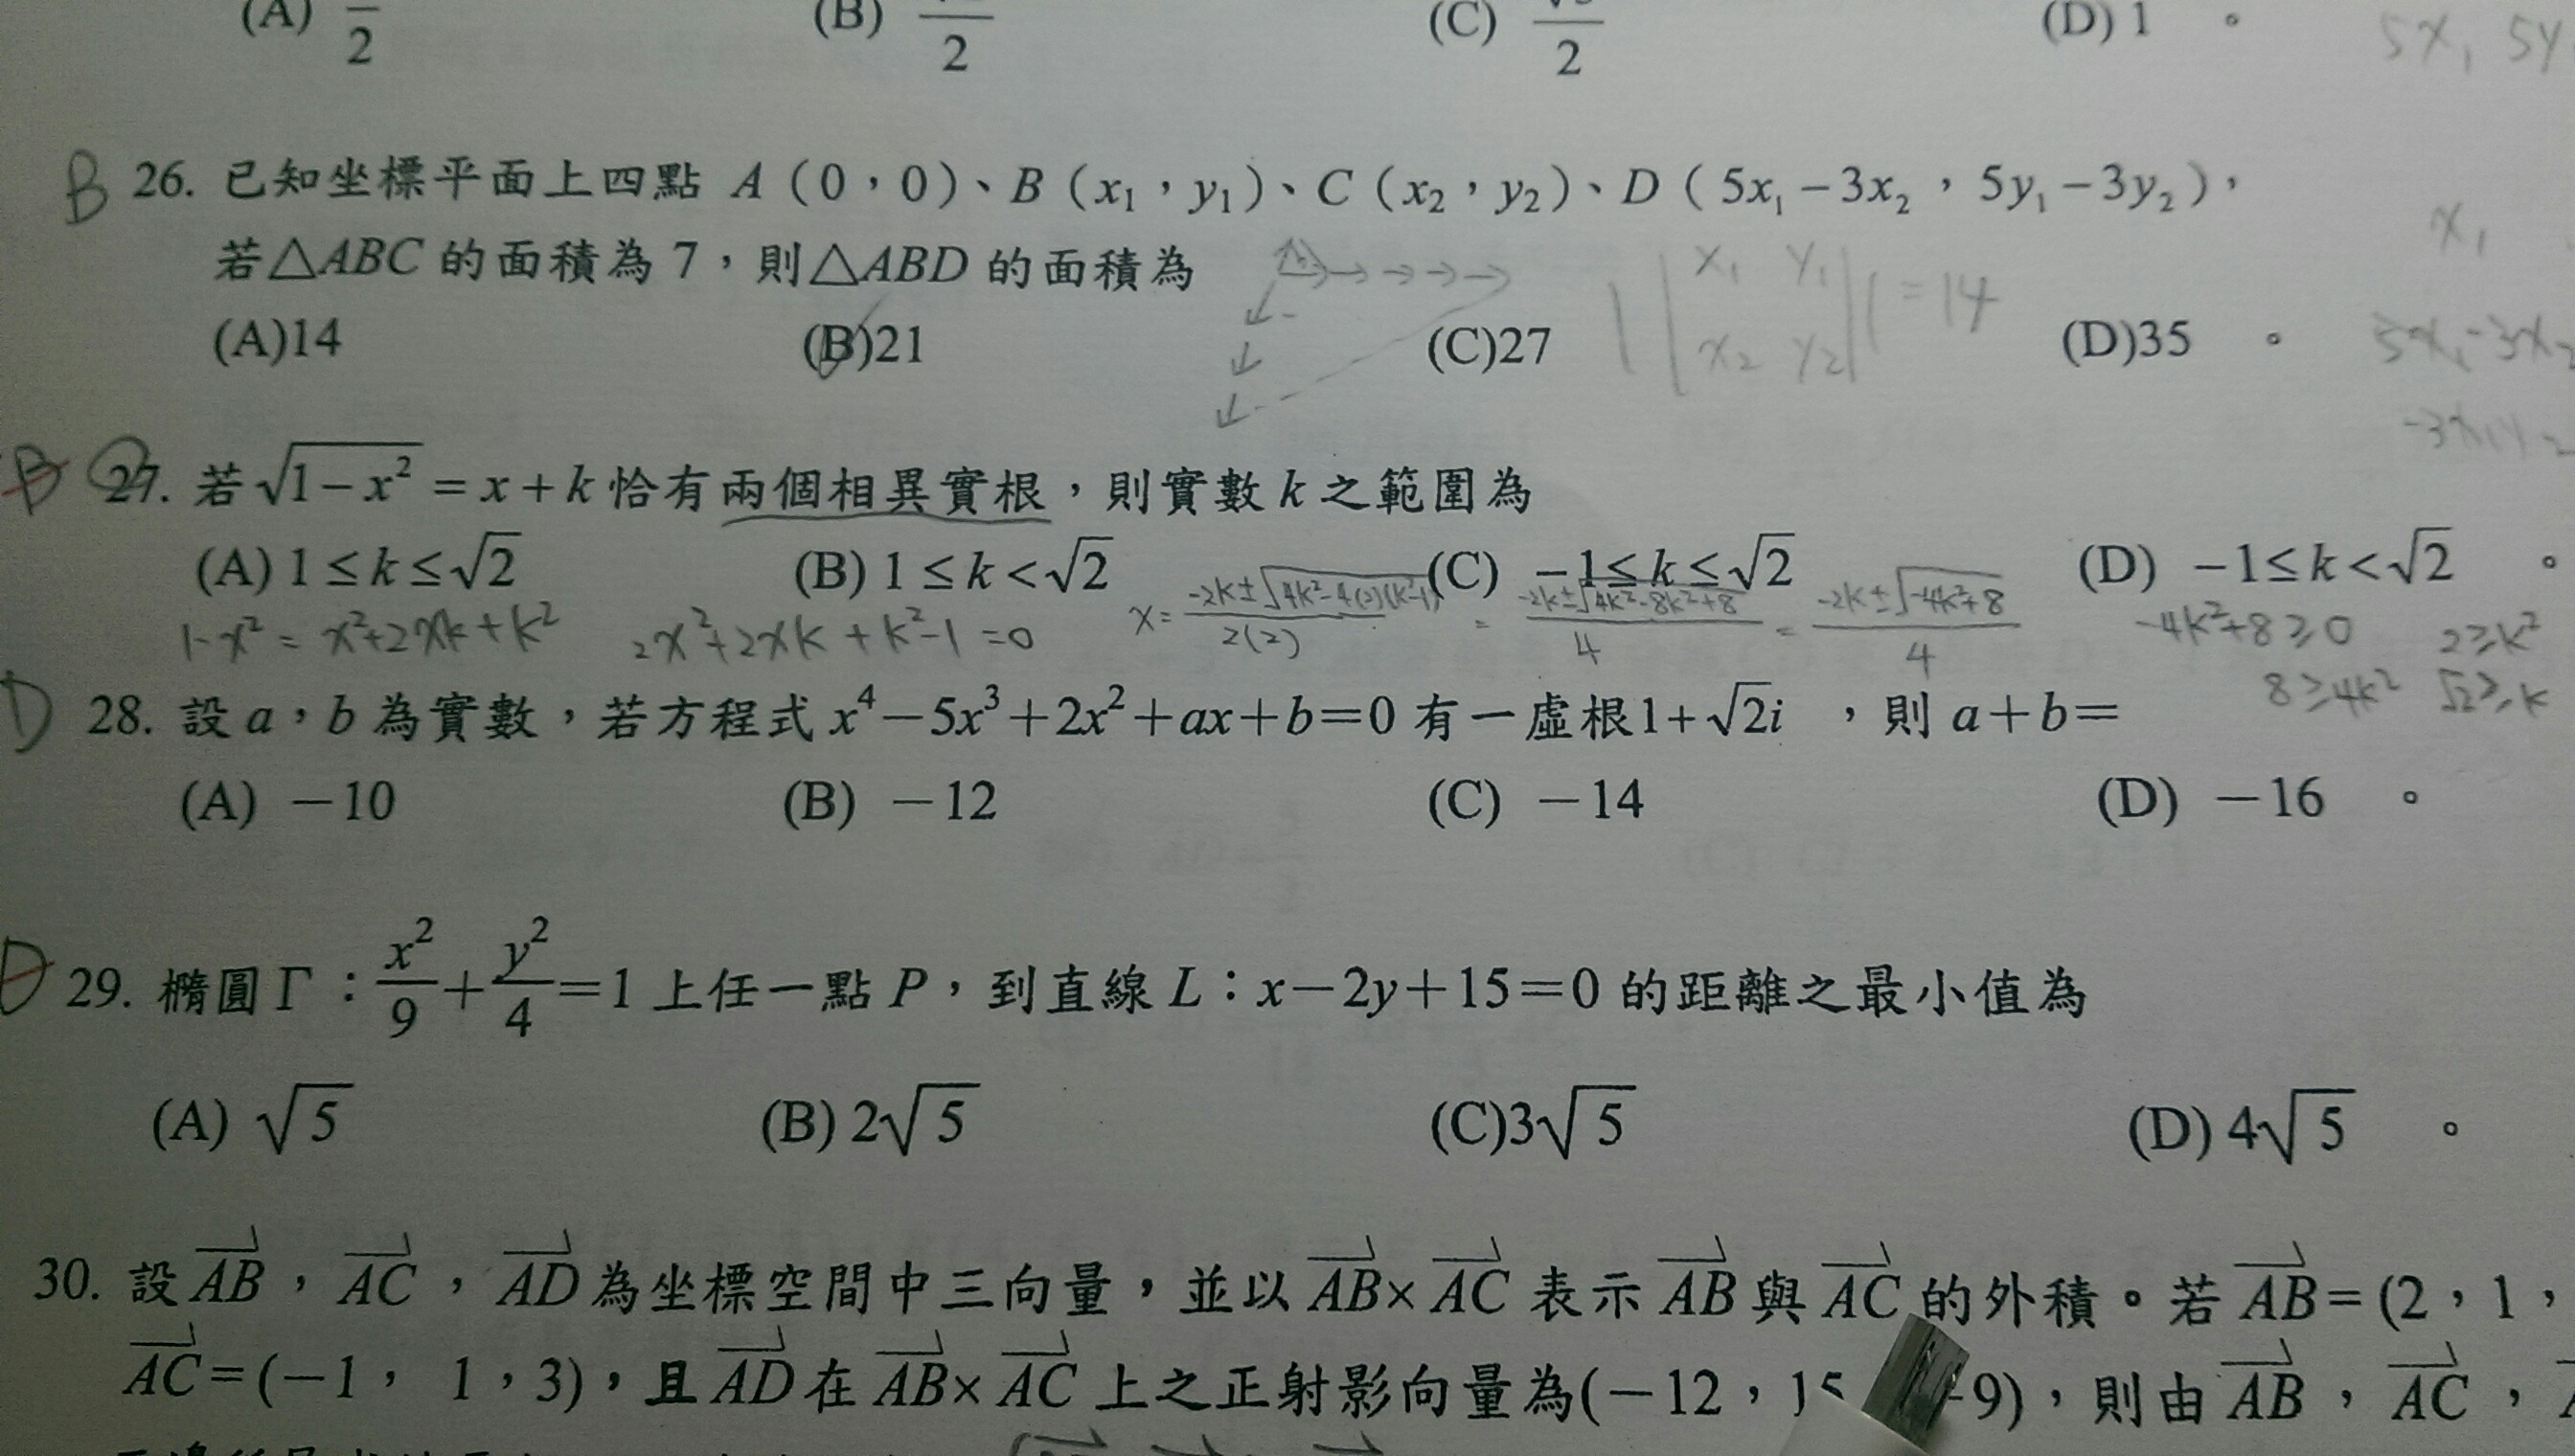 (A) 2 (B) 2 (C) 2 (D) 1 。 5x₁ 5y
B 26. 已知坐標平面上四點 A（0，0）、B（x₁，y₁）、C（x₂，y₂）、D（5x₁－3x₂，5y₁－3y₂），
若△ABC 的面積為 7，則△ABD 的面積為 | |x₁ y₁ x₂ y₂| | = 14 x₁
(A)14 (B)21 (C)27 (D)35 。 5x₁-3x₂
B 27. 若√(1－x²) = x + k 恰有兩個相異實根，則實數 k 之範圍為
(A) 1 ≤ k ≤ √2 (B) 1 ≤ k < √2 (C) －1 ≤ k ≤ √2 (D) －1 ≤ k < √2 。
1-x² = x²+2xk+k² 2x²+2xk+k²-1=0 x= (-2k±√(4k²-4(2)(k²-1)))/2(2) = (-2k±√(4k²-8k²+8))/4 = (-2k±√(-4k²+8))/4 -4k²+8≥0 2≥k²
8≥4k² √2≥k
D 28. 設 a，b 為實數，若方程式 x⁴－5x³＋2x²＋ax＋b＝0 有一虛根1＋√2i ，則 a＋b＝
(A) －10 (B) －12 (C) －14 (D) －16 。
D 29. 橢圓 Γ：x²/9＋y²/4＝1 上任一點 P，到直線 L：x－2y＋15＝0 的距離之最小值為
(A) √5 (B) 2√5 (C)3√5 (D) 4√5 。
30. 設AB，AC，AD為坐標空間中三向量，並以AB×AC 表示 AB與AC的外積。若 AB＝(2，1，
AC＝(－1， 1，3)，且AD在 AB×AC 上之正射影向量為(－12，15 －9)，則由 AB，AC，